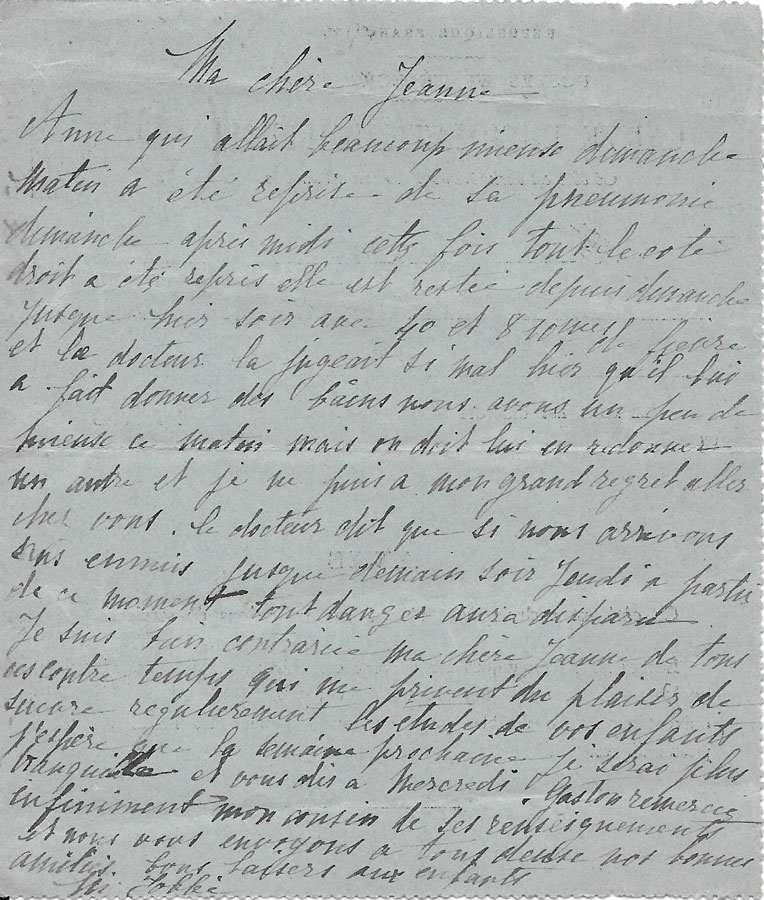 Ma chère Jeanne
Anne qui allait beaucoup mieuse dimanche
Matin a été reprise de sa pneumonie
dimanche après midi cette fois tout le coté
droit a été repris elle est restée depuis dimanche
jusque hier soir avec 40 et 8 de fièvre
et le docteur la jugeait si mal hier qu'il lui
a fait donner des bains nous avons un peu de
mieuse ce matin mais on doit lui en redonner
un autre et je ne puis a mon grand regret aller
chez vous. le docteur dit que si nous arrivons
sans ennuis jusque demain soir Jeudi a partir
de ce moment tout danger aura disparu
Je suis bien contrariée ma chère Jeanne de tous
ces contre temps qui me privent du plaisir de
suivre regulierement les études de vos enfants
j'espère que la semaine prochaine je serai plus
tranquille et vous dis a Mercredi. Gaston remercie
infiniment mon cousin de ses renseignements
et nous vous envoyons a tous deuse nos bonnes
amitiés. bons baisers aux enfants